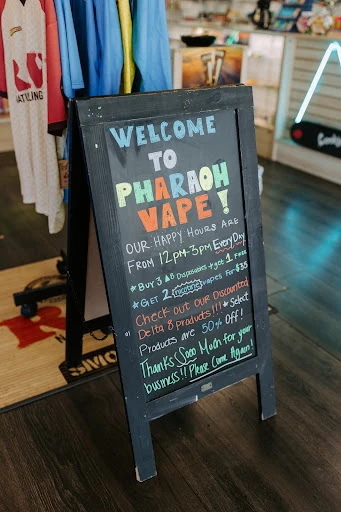 WELCOME
TO
PHARAOH
VAPE!
OUR HAPPY HOURS ARE
FROM 12PM-3PM EveryDay
* BUY 3 Δ8 Disposables + get 1 FREE
* GET 2 nicotine vapes FOR $35
Check out our Discounted
Delta 8 products!!! * Select
Products are 50% Off!
Thanks Sooo Much for your
business!! Please Come Again!